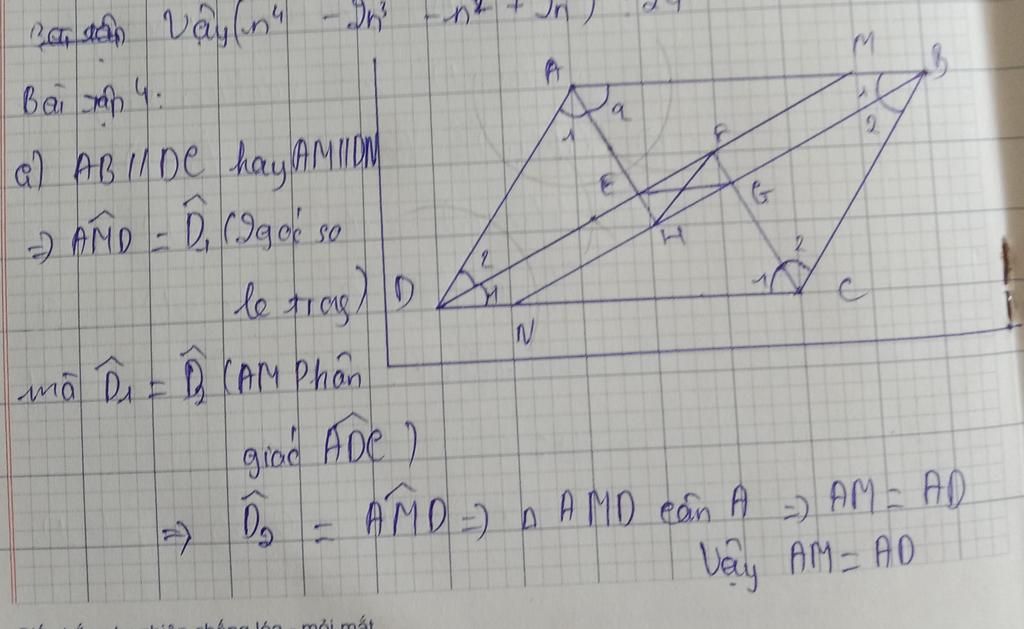 Vậy (n⁴ - 2n³ - n² + 2n)
Bài tập 4:
a) AB // DC hay AM // DN
=> AMD = D₁ (2 góc so
le trong)
mà D₁ = D₂ (AM Phân
giác ADC)
=> D₂ = AMD => Δ AMD cân A => AM = AD
Vậy AM = AD
A
M
B
1
2
1
2
F
E
G
H
D
2
1
N
1
2
C